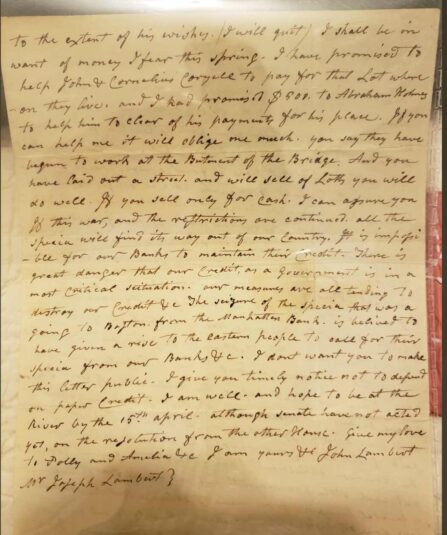 to the extent of his wishes. (I will quit) I shall be in
want of money I fear this spring. I have promised to
help John & Cornelius Coryell to pay for that Lot where
-on they live. and I had promised $500. to Abraham Holmes
to help him to clear of his payments for his place. If you
can help me it will oblige me much. you say they have
begun to work at the Butment of the Bridge. And you
have laid out a street. and will sell of Lotts you will
do well. If you sell only for Cash. I can assure you
If this war, and the restrictions are continued. all the
Specia will find its way out of our Country. It is impossi
-ble for our Banks to maintain their Credit. There is
great danger that our Credit, as a Government is in a
most Critical situation. our measures are all tending to
destroy our Credit &c The seizure of the specia that was a
going to Boston. from the Manhattan Bank. is belived to
have given a rise to the Eastern people to call for their
Specia from our Banks &c. I dont want you to make
this letter public. I give you timely notice not to depend
on paper Credit. I am well. and hope to be at the
River by the 15th april. although senate have not acted
yet, on the resolution from the other House. Give my love
to Polly and Amelia &c I am yours &c John Lambert
Mr Joseph Lambert }